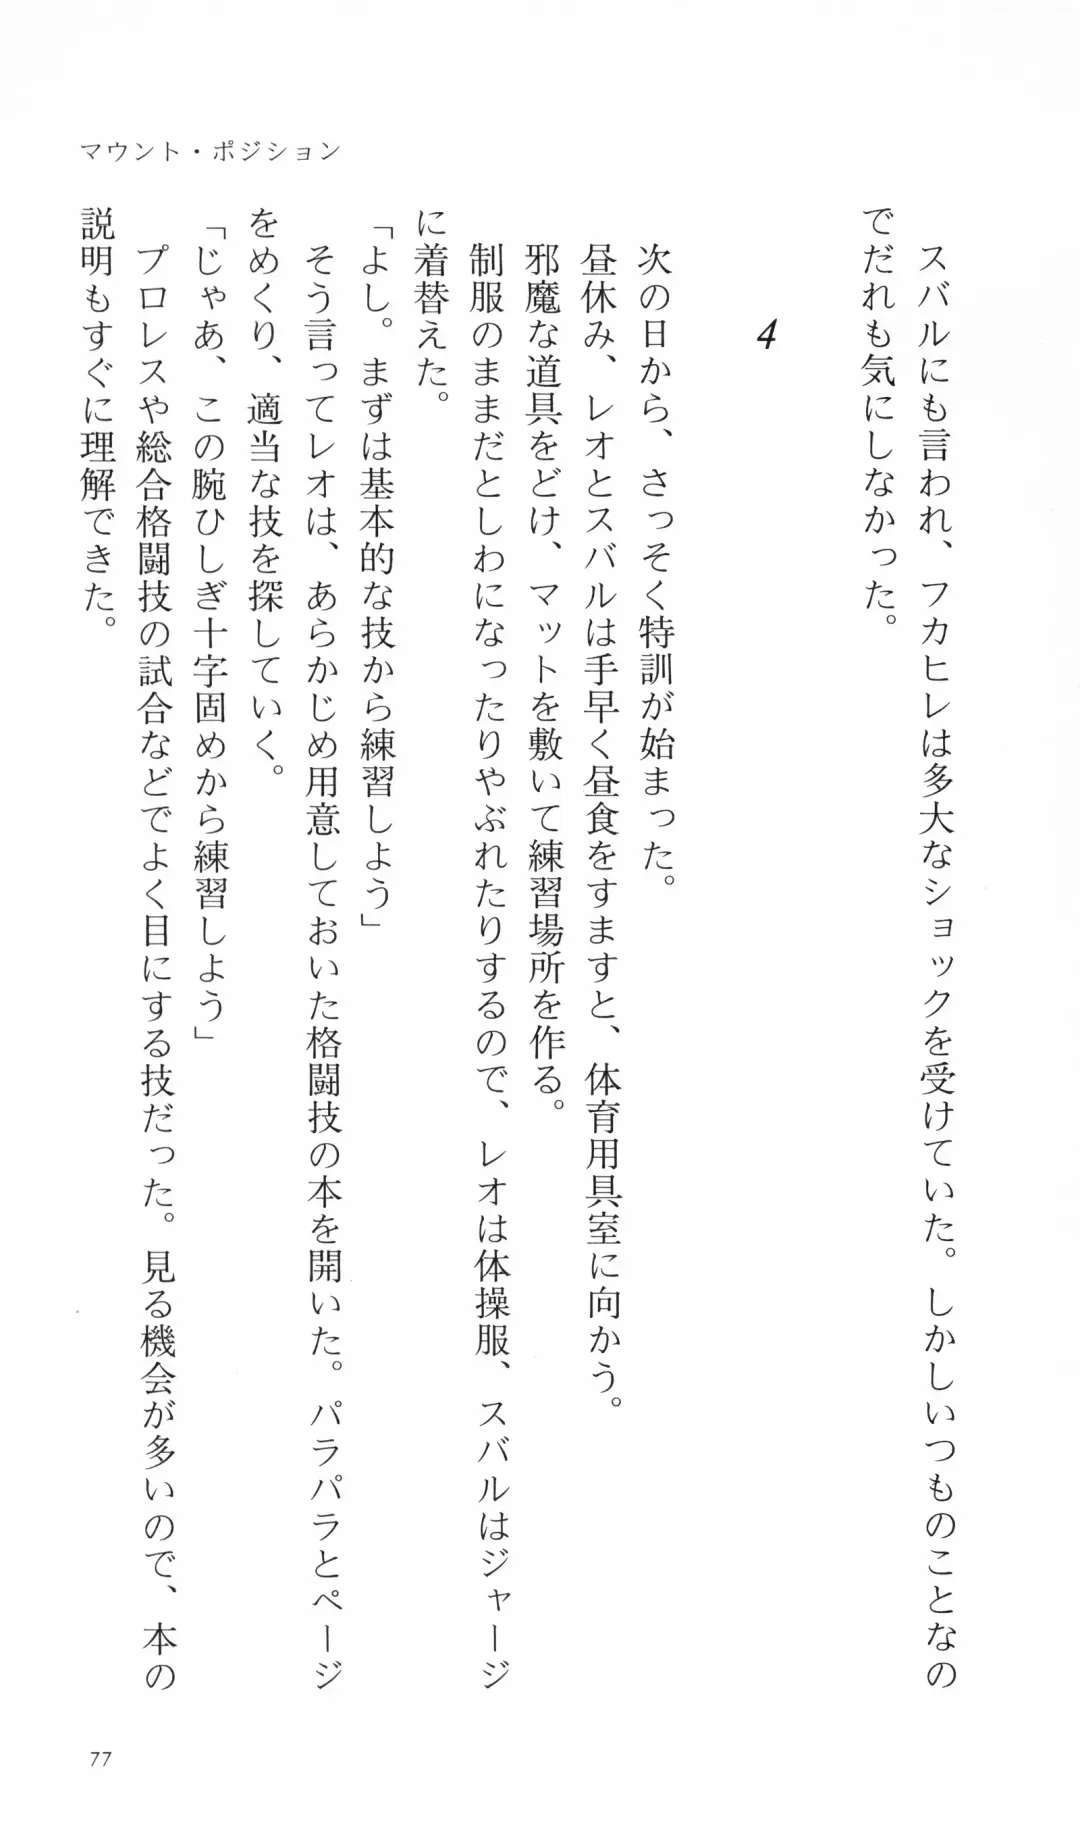 マウント・ポジション
　スバルにも言われ、フカヒレは多大なショックを受けていた。しかしいつものことなの
でだれも気にしなかった。
4
　次の日から、さっそく特訓が始まった。
　昼休み、レオとスバルは手早く昼食をすますと、体育用具室に向かう。
　邪魔な道具をどけ、マットを敷いて練習場所を作る。
　制服のままだとしわになったりやぶれたりするので、レオは体操服、スバルはジャージ
に着替えた。
「よし。まずは基本的な技から練習しよう」
　そう言ってレオは、あらかじめ用意しておいた格闘技の本を開いた。パラパラとページ
をめくり、適当な技を探していく。
「じゃあ、この腕ひしぎ十字固めから練習しよう」
　プロレスや総合格闘技の試合などでよく目にする技だった。見る機会が多いので、本の
説明もすぐに理解できた。
77